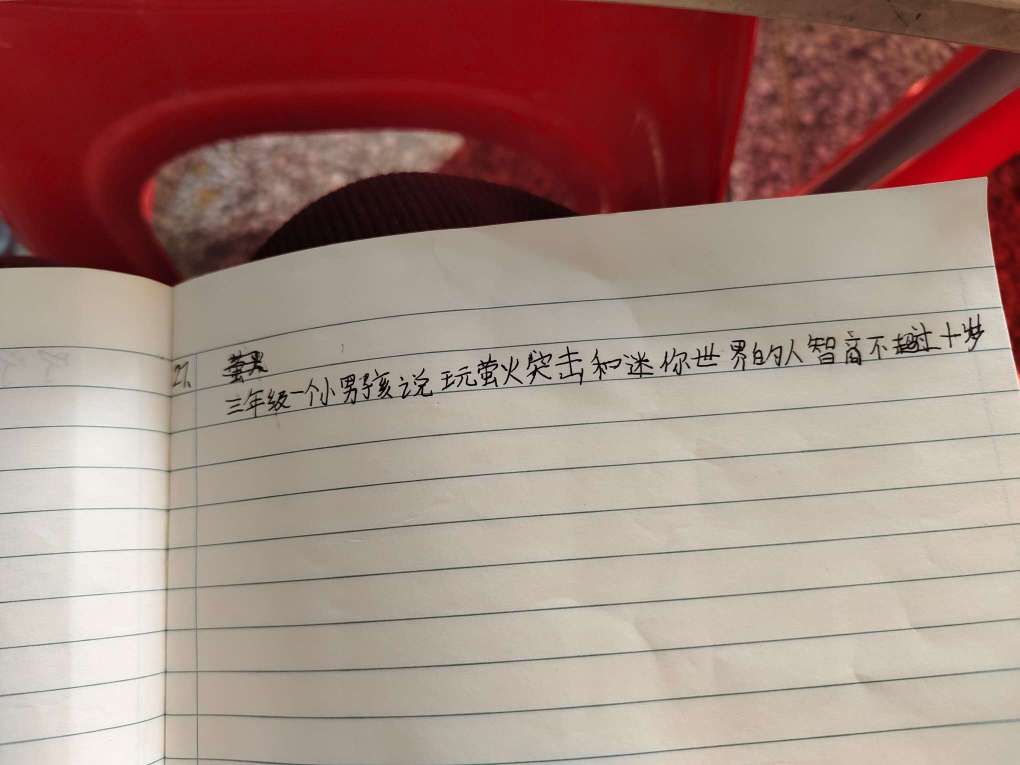 27、
三年级一个小男孩说玩萤火突击和迷你世界的人智商不超过十岁